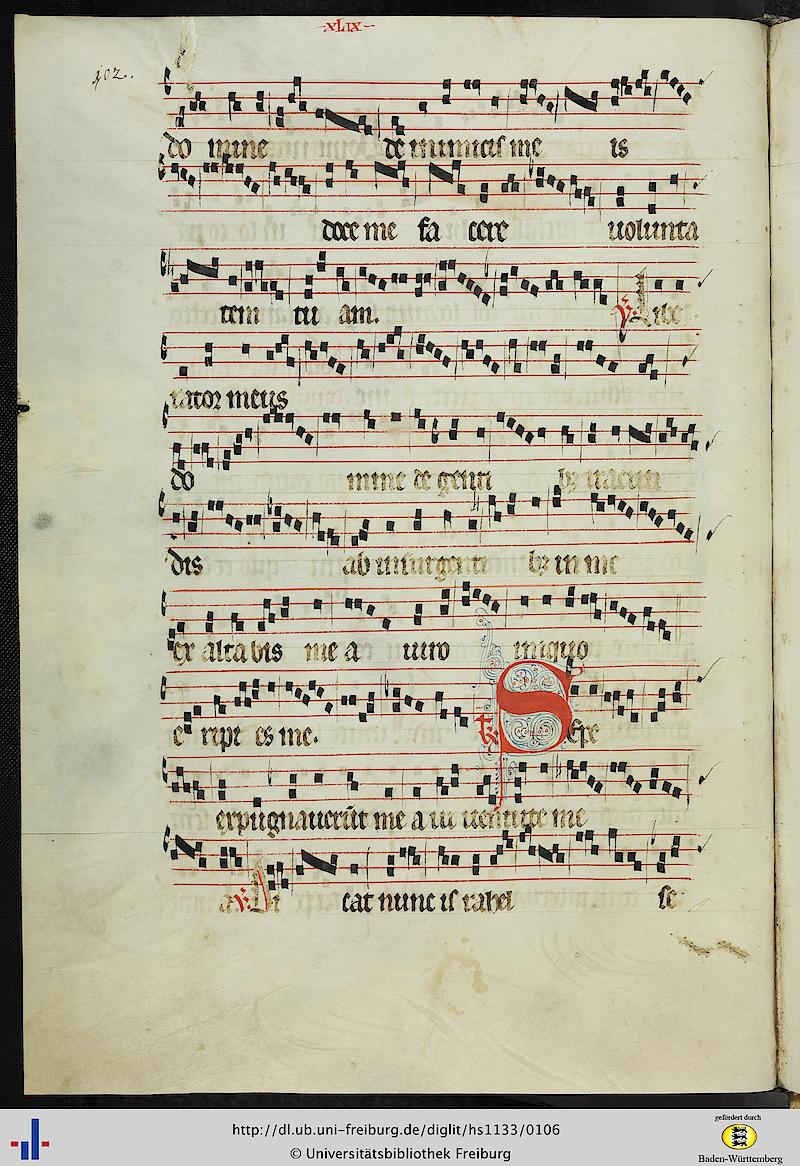 XLIX
102.
do mine de inimicis me is
doce me fa cere uolunta
tem tu am. V. Libe
rator meus
do mine de genti bz iracun
dis ab insurgenti bz in me
ex altabis me a uiro iniquo
e ripi es me. Tr Sepe
expugnauerūt me a iu uentute me
a V. Di cat nunc is rahel se
http://dl.ub.uni-freiburg.de/diglit/hs1133/0106
© Universitätsbibliothek Freiburg
gefördert durch
Baden-Württemberg